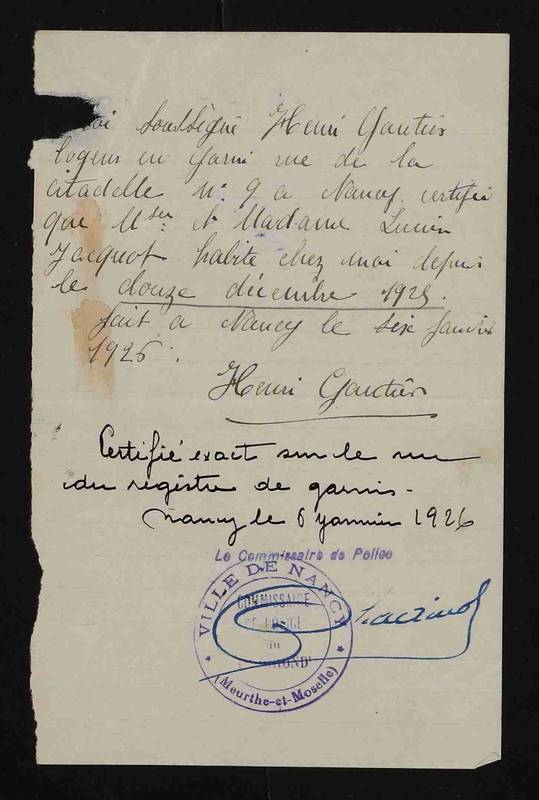 oi soussigné Henri Gautier
logeur en Garni rue de la
citadelle N° 9 a Nancy. certifie
que Mser et Madame Lucien
Jacquot habite chez moi depuis
le douze décembre 1925.
fait a Nancy le six Janvier
1926.
Henri Gautier
Certifié exact sur le vu
du registre de garnis.
Nancy le 6 Janvier 1926
Le Commissaire de Police
VILLE DE NANCY
COMMISSAIRE
DE POLICE
DU
(Meurthe-et-Moselle)